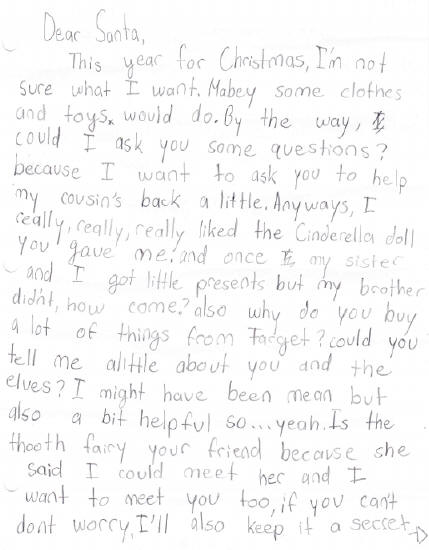 Dear Santa,
This year for Christmas, I'm not
sure what I want. Mabey some clothes
and toys would do. By the way, I
could I ask you some questions?
because I want to ask you to help
my cousin's back a little. Anyways, I
really, really, really liked the Cinderella doll
you gave me. and once my sister
and I got little presents but my brother
didn't, how come? also why do you buy
a lot of things from Target? could you
tell me alittle about you and the
elves? I might have been mean but
also a bit helpful so... yeah. Is the
thooth fairy your friend because she
said I could meet her and I
want to meet you too, if you can't
dont worry, I'll also keep it a secret→